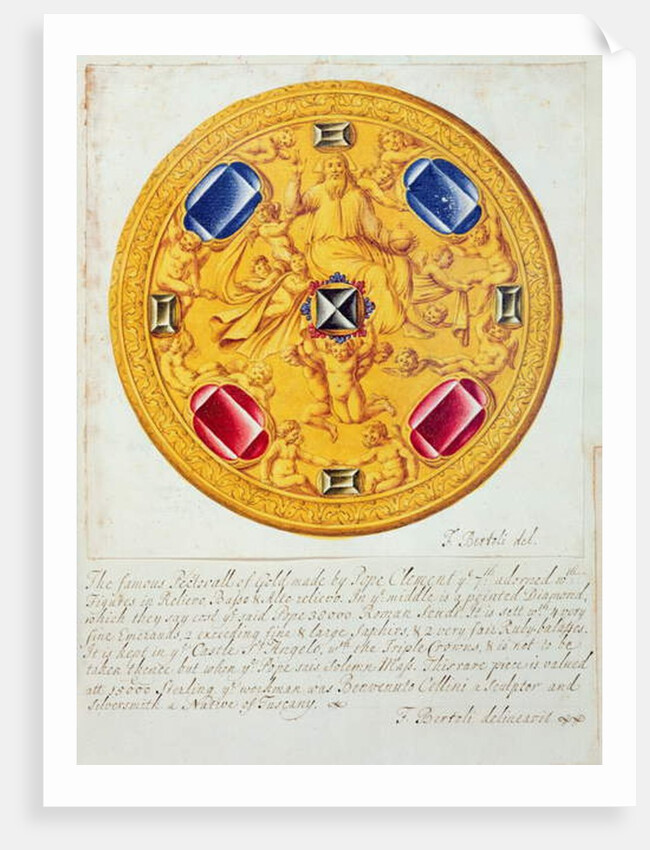 F. Bertoli del.
The famous Pectorall of Gold made by Pope Clement yͤ 7th adorned wth
Figures in Relievo, Basso & Alto relievo. In yͤ middle is a pointed Diamond,
which they say cost yͤ said Pope 38000 Roman Scudi. It is sett wth 4 very
fine Emerauds, 2 exceeding fine & large Saphirs, & 2 very fair Ruby balasses.
It is kept in yͤ Castle St. Angelo, wth the Triple Crowns, & is not to be
taken thence but when yͤ Pope sais Solemn Mass. This rare piece is valued
att 15000 Sterling yͤ workman was Benvenuto Cellini a Sculptor and
Silversmith a Native of Tuscany.
F. Bertoli delineavit